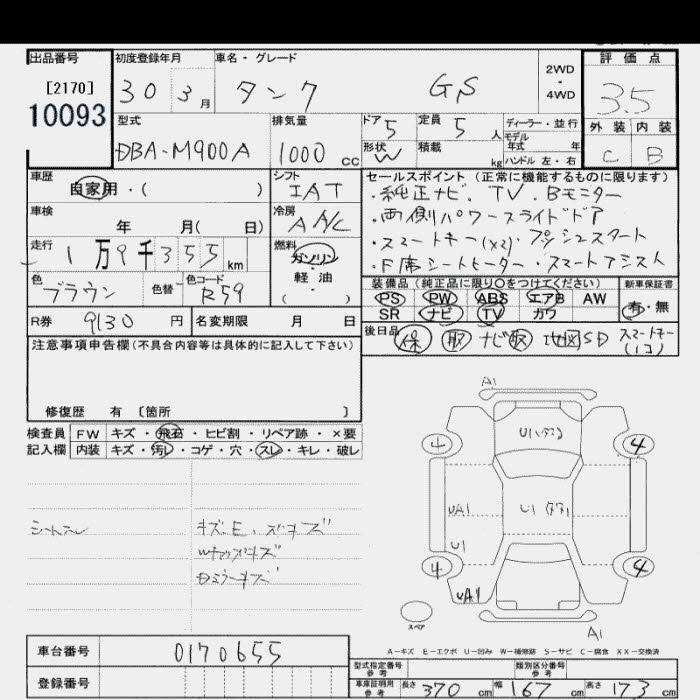 出品番号 初度登録年月 車名・グレード 評価点
[2170] 30 3月 タンク GS 2WD・4WD 3.5
10093
型式 排気量 ドア 5 定員 5 人 ディーラー・並行 外装 内装
DBA-M900A 1000 cc 形状 W 積載 kg モデル年式 年 C B
ハンドル 左・右
車歴 シフト セールスポイント (正常に機能するものに限ります)
自家用・( ) IAT ・純正ナビ、TV、Bモニター
車検 冷房 ・両側パワースライドドア
年 月( 日) A/C ・スマートキー(×2)・プッシュスタート
走行 燃料 ・F席シートヒーター・スマートアシスト
1万9千355km ガソリン・軽・油( )
色 色替 色コード 装備品 (純正品に限り○をつけてください) 新車保証書
ブラウン R59 PS PW ABS エアB AW 有・無
SR ナビ TV カワ
R券 9130 円 名変期限 月 日 後日品 保 取 ナビ取 地図SD スマートキー(1コ)
注意事項申告欄(不具合内容等は具体的に記入して下さい)
修復歴 有 〔箇所 〕
検査員 FW キズ・飛石・ヒビ割・リペア跡・×要
記入欄 内装 キズ・汚レ・コゲ・穴・スレ・キレ・破レ
A1
4 4
UA1 U1
U1
4 4
UA1
スペア A1
シートスレ キズ、E、
A-キズ E-エクボ U-凹み W-補修跡 S-サビ C-腐食 XX-交換済
車台番号 0170655
登録番号
型式指定番号参考 類別区分番号参考
車庫証明用参考 長さ 370 cm 幅 167 cm 高さ 173 cm